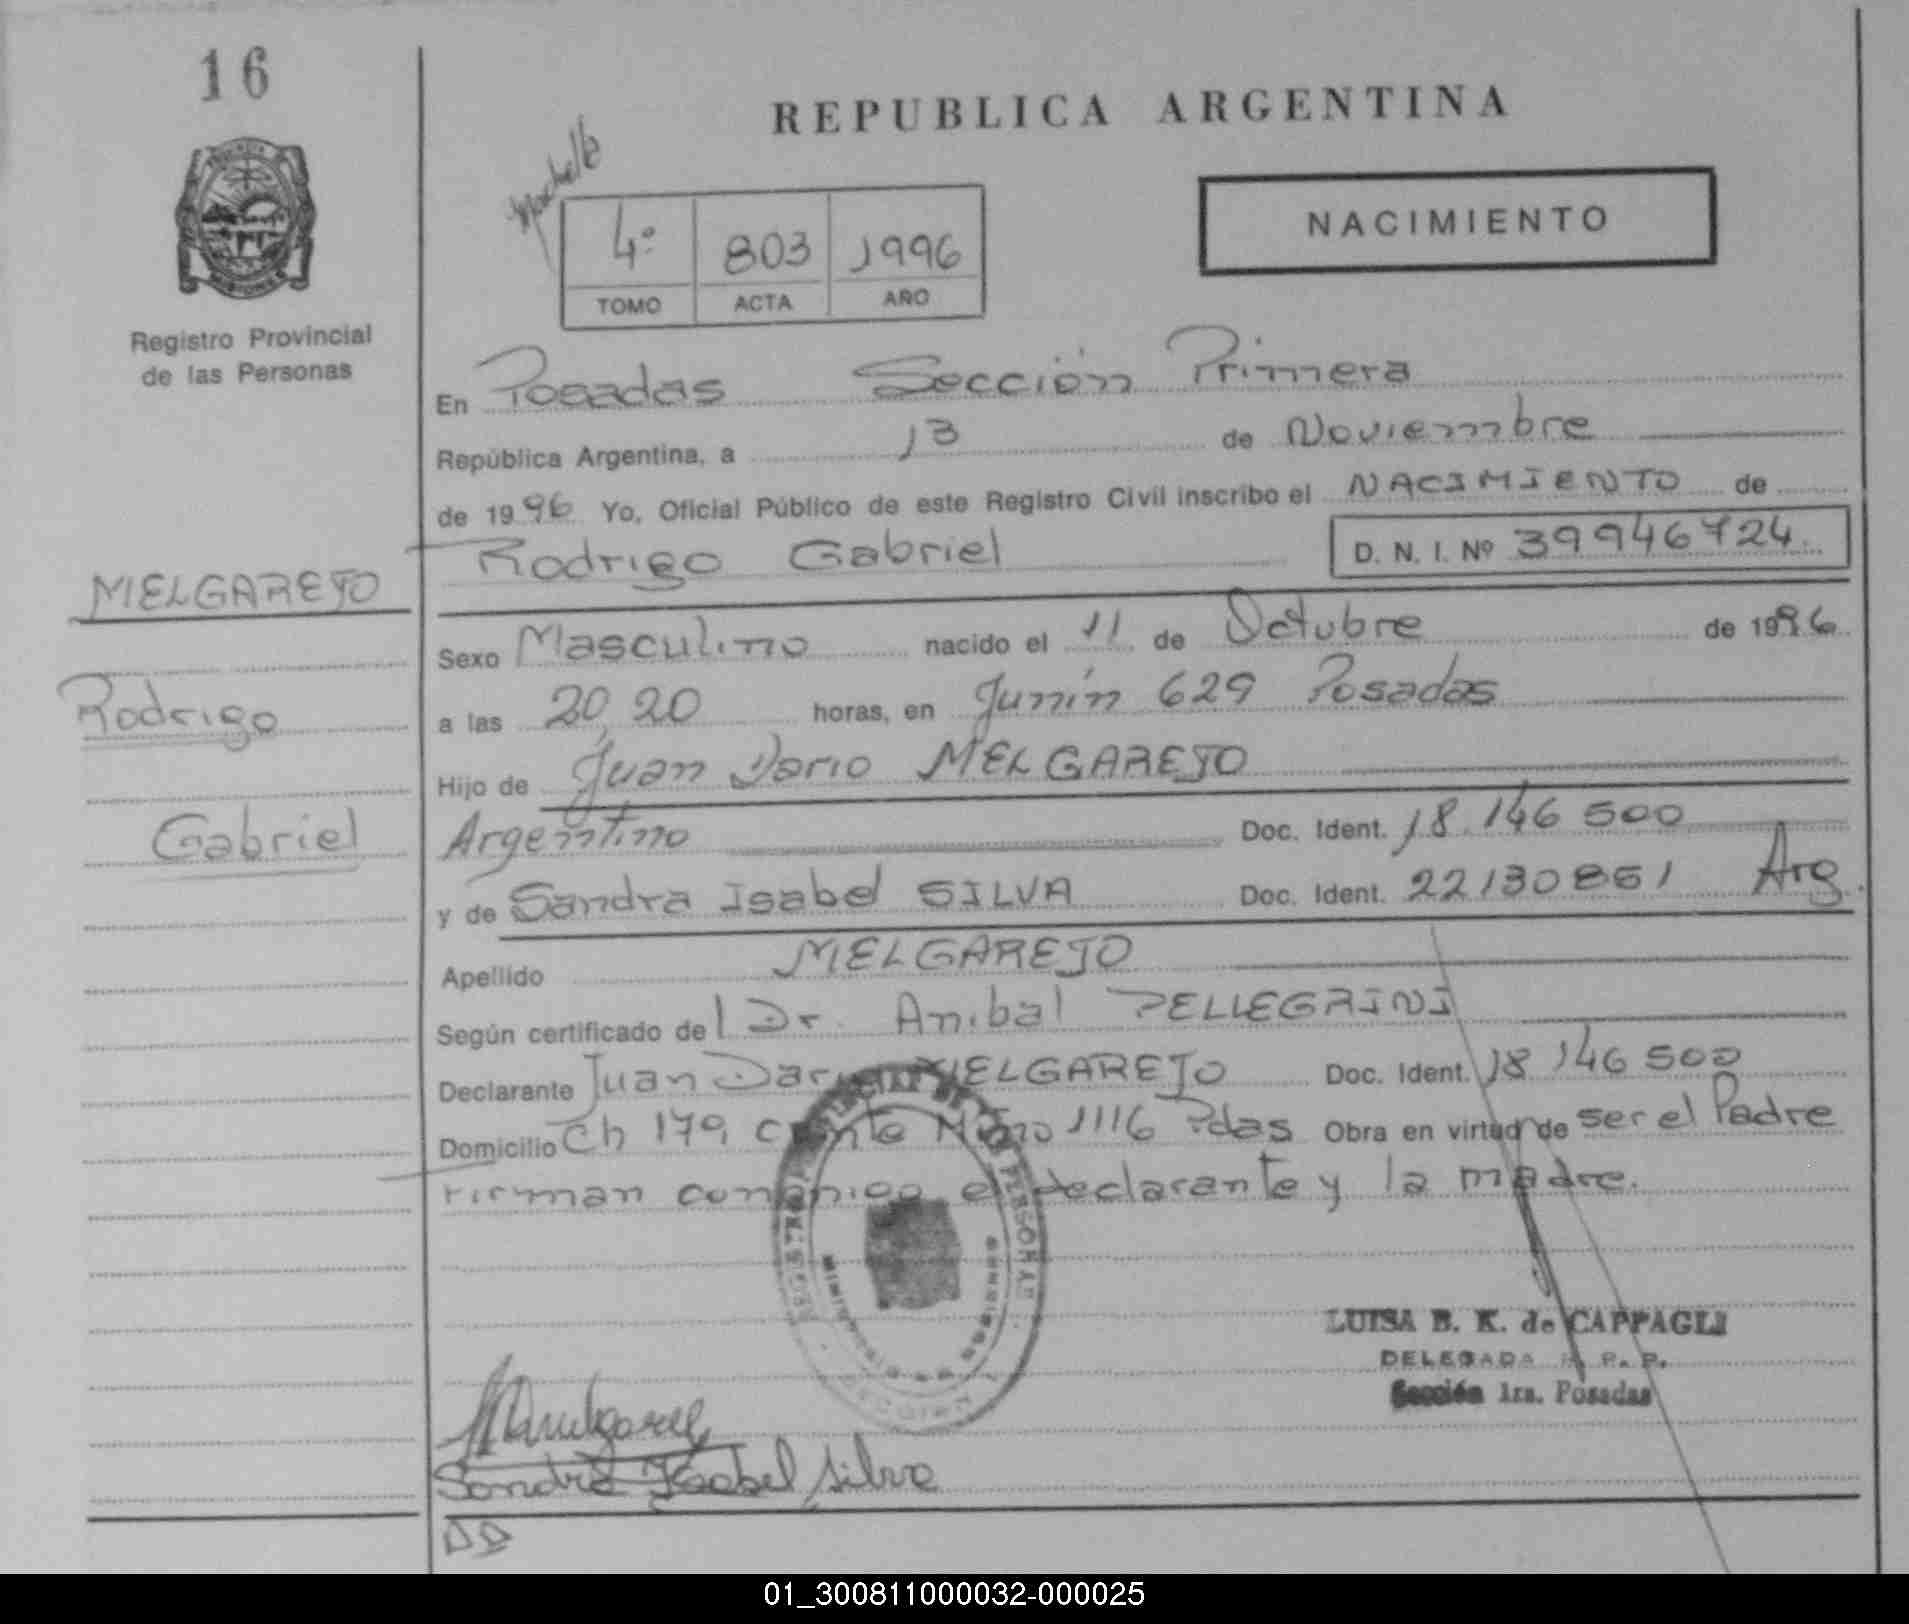 16
REPUBLICA ARGENTINA
NACIMIENTO
4º 803 1996
TOMO ACTA AÑO
Registro Provincial
de las Personas
En Posadas Sección Primera
República Argentina, a 13 de Noviembre
de 1996 Yo, Oficial Público de este Registro Civil inscribo el NACIMIENTO de
Rodrigo Gabriel D. N. I. Nº 39946724.
MELGAREJO
Sexo Masculino nacido el 11 de Octubre de 1996
Rodrigo
a las 20,20 horas, en Junín 629 Posadas
Hijo de Juan Dario MELGAREJO
Gabriel
Argentino Doc. Ident. 18.146 500
y de Sandra Isabel SILVA Doc. Ident. 22130861 Arg.
Apellido MELGAREJO
Según certificado del Dr. Anibal PELLEGRINI
Declarante Juan Dario MELGAREJO Doc. Ident. 18 146 500
Domicilio Ch 179, 1116 Pdas Obra en virtud de ser el Padre
Firman conmigo el declarante y la madre.
LUISA B. K. de CAPPAGLI
DELEGADA R. P. P.
Sección 1ra. Posadas
Sandra Isabel Silva
01_300811000032-000025